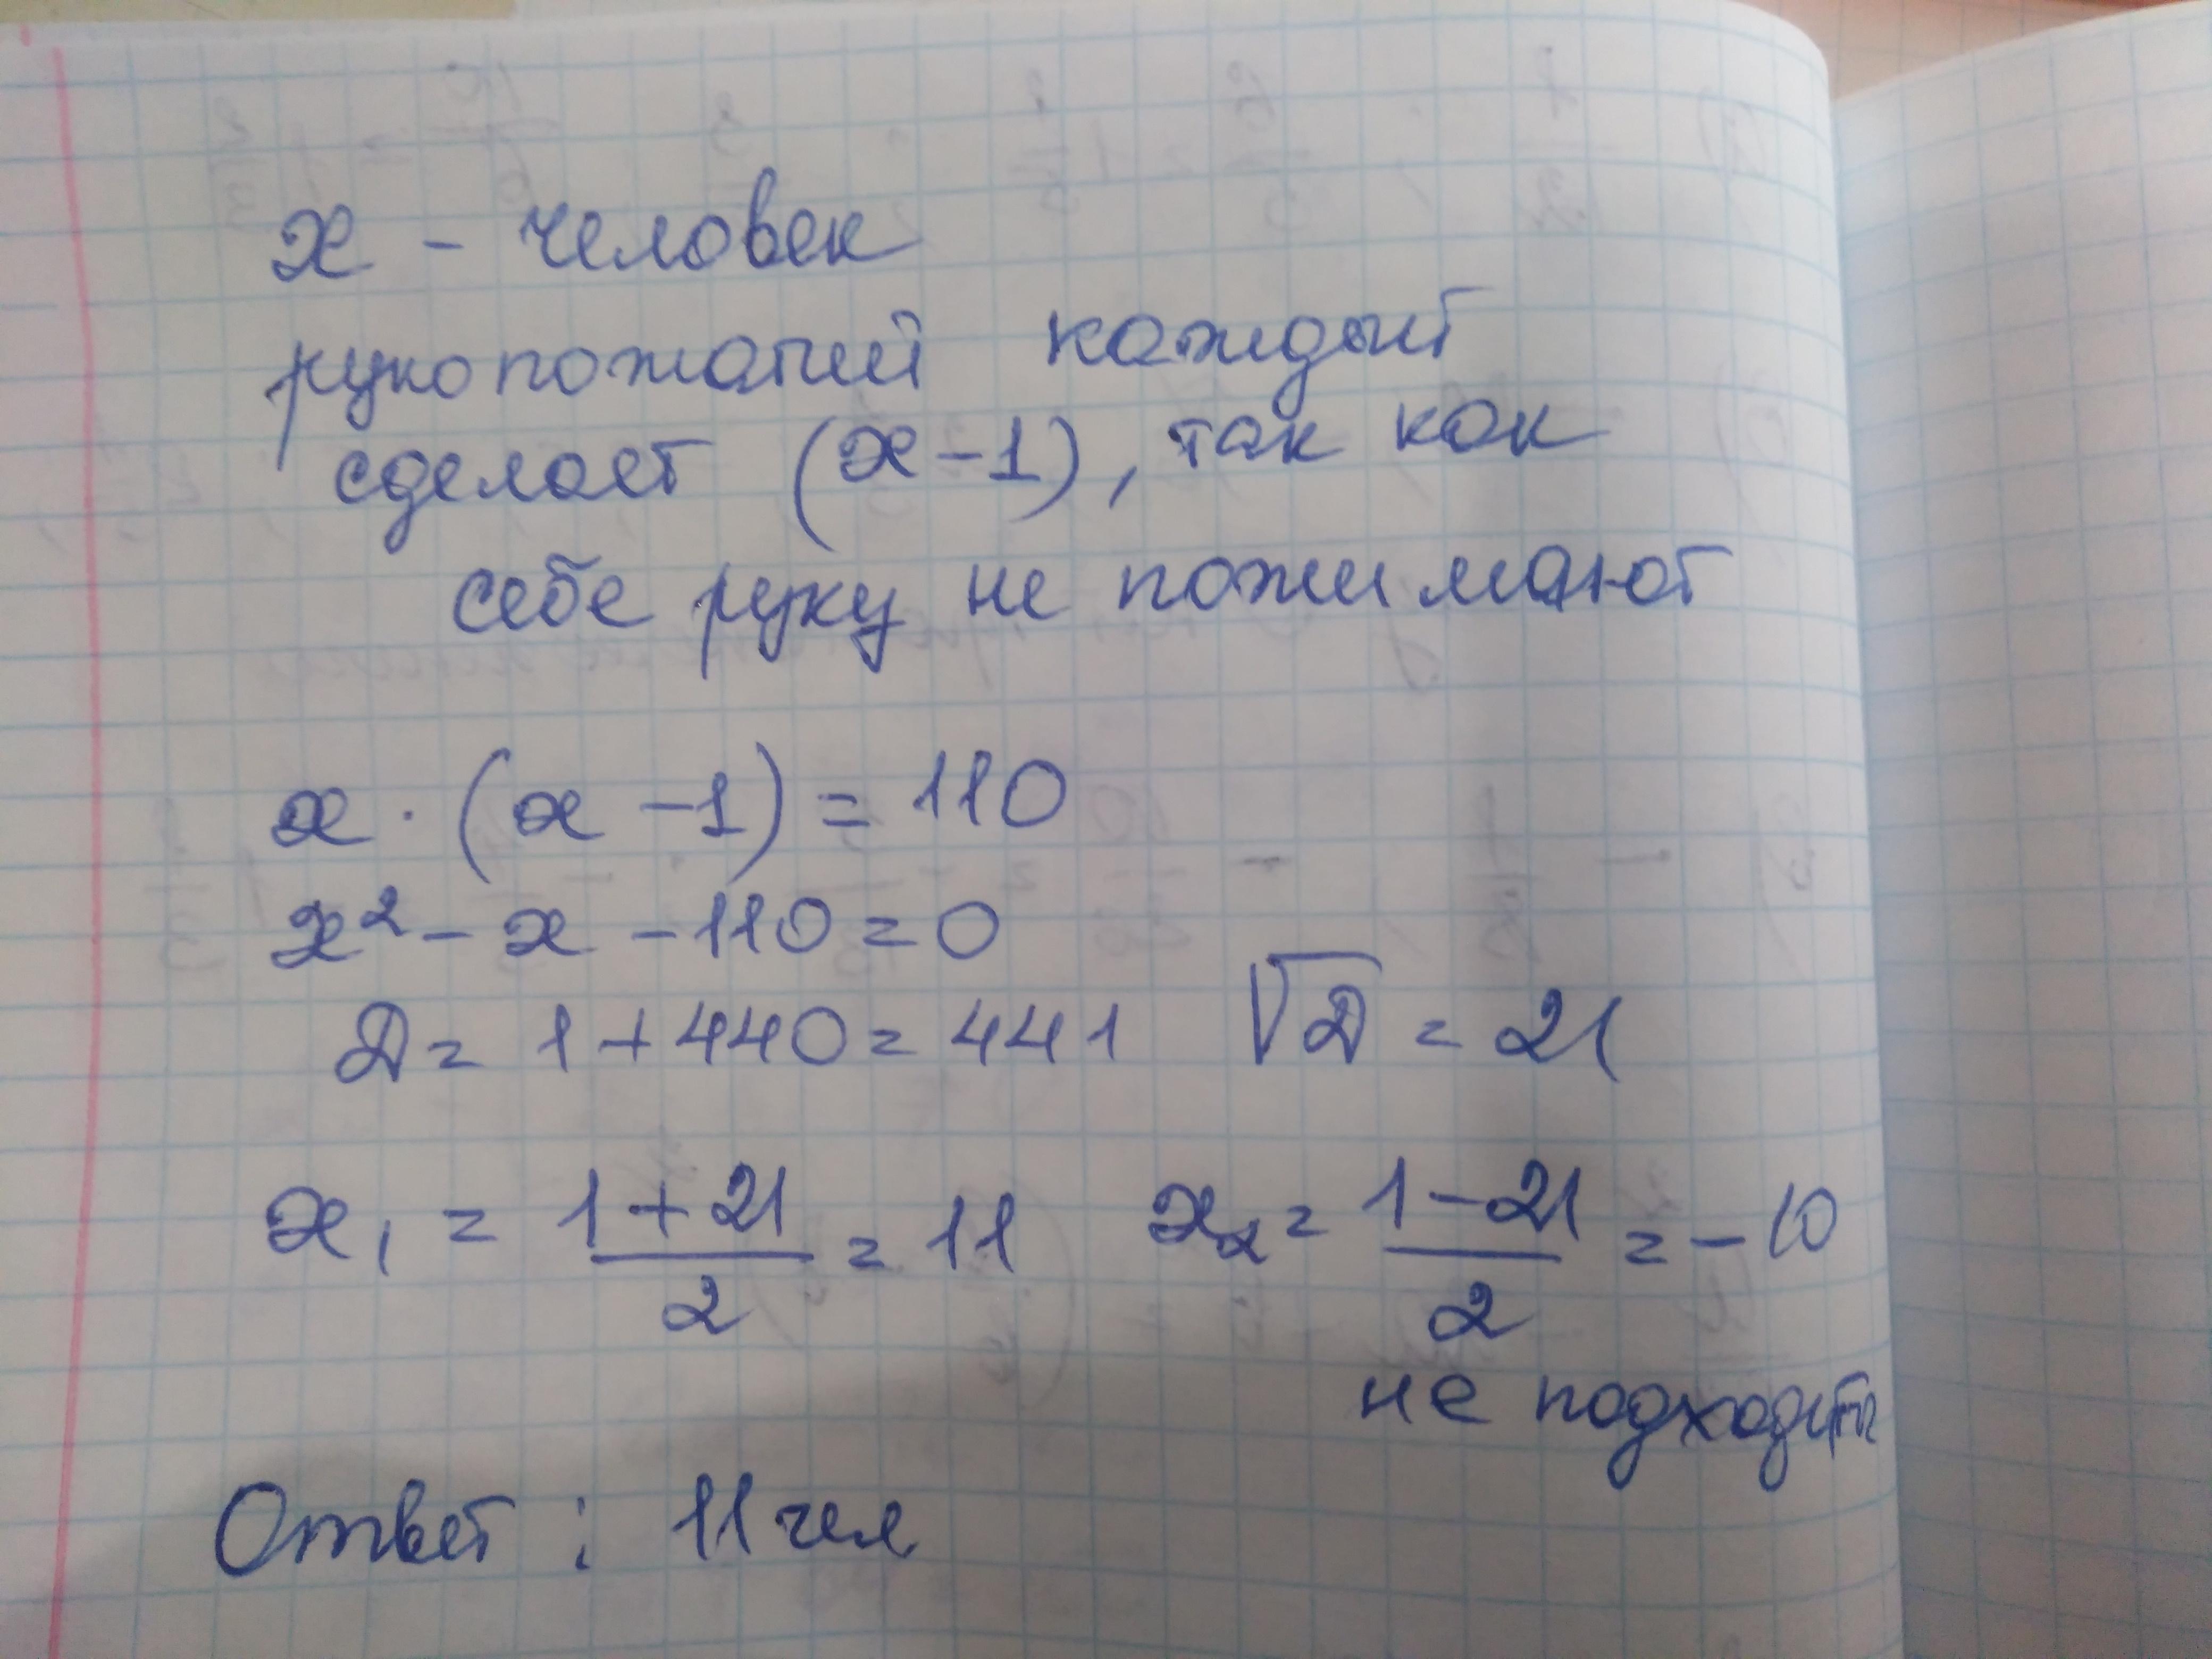 x - человек
рукопожатий каждый
сделает (x-1), так как
себе руку не пожимают
x · (x - 1) = 110
x² - x - 110 = 0
D = 1 + 440 = 441 √D = 21
x₁ = (1 + 21)/2 = 11 x₂ = (1 - 21)/2 = -10
не подходит
Ответ: 11 чел